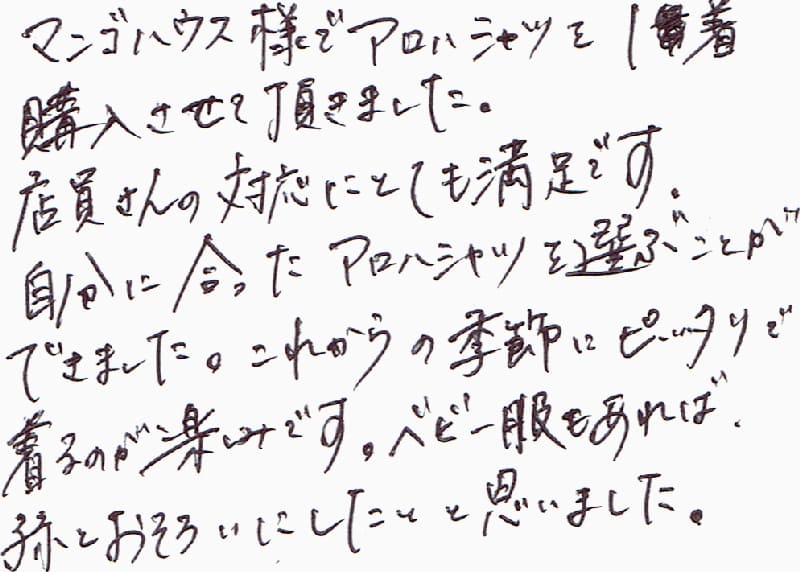 マンゴハウス様でアロハシャツを1着
購入させて頂きました。
店員さんの対応にとても満足です。
自分に合ったアロハシャツを選ぶことが
できました。これからの季節にピッタリで
着るのが楽しみです。ベビー服もあれば、
孫とおそろいにしたいと思いました。